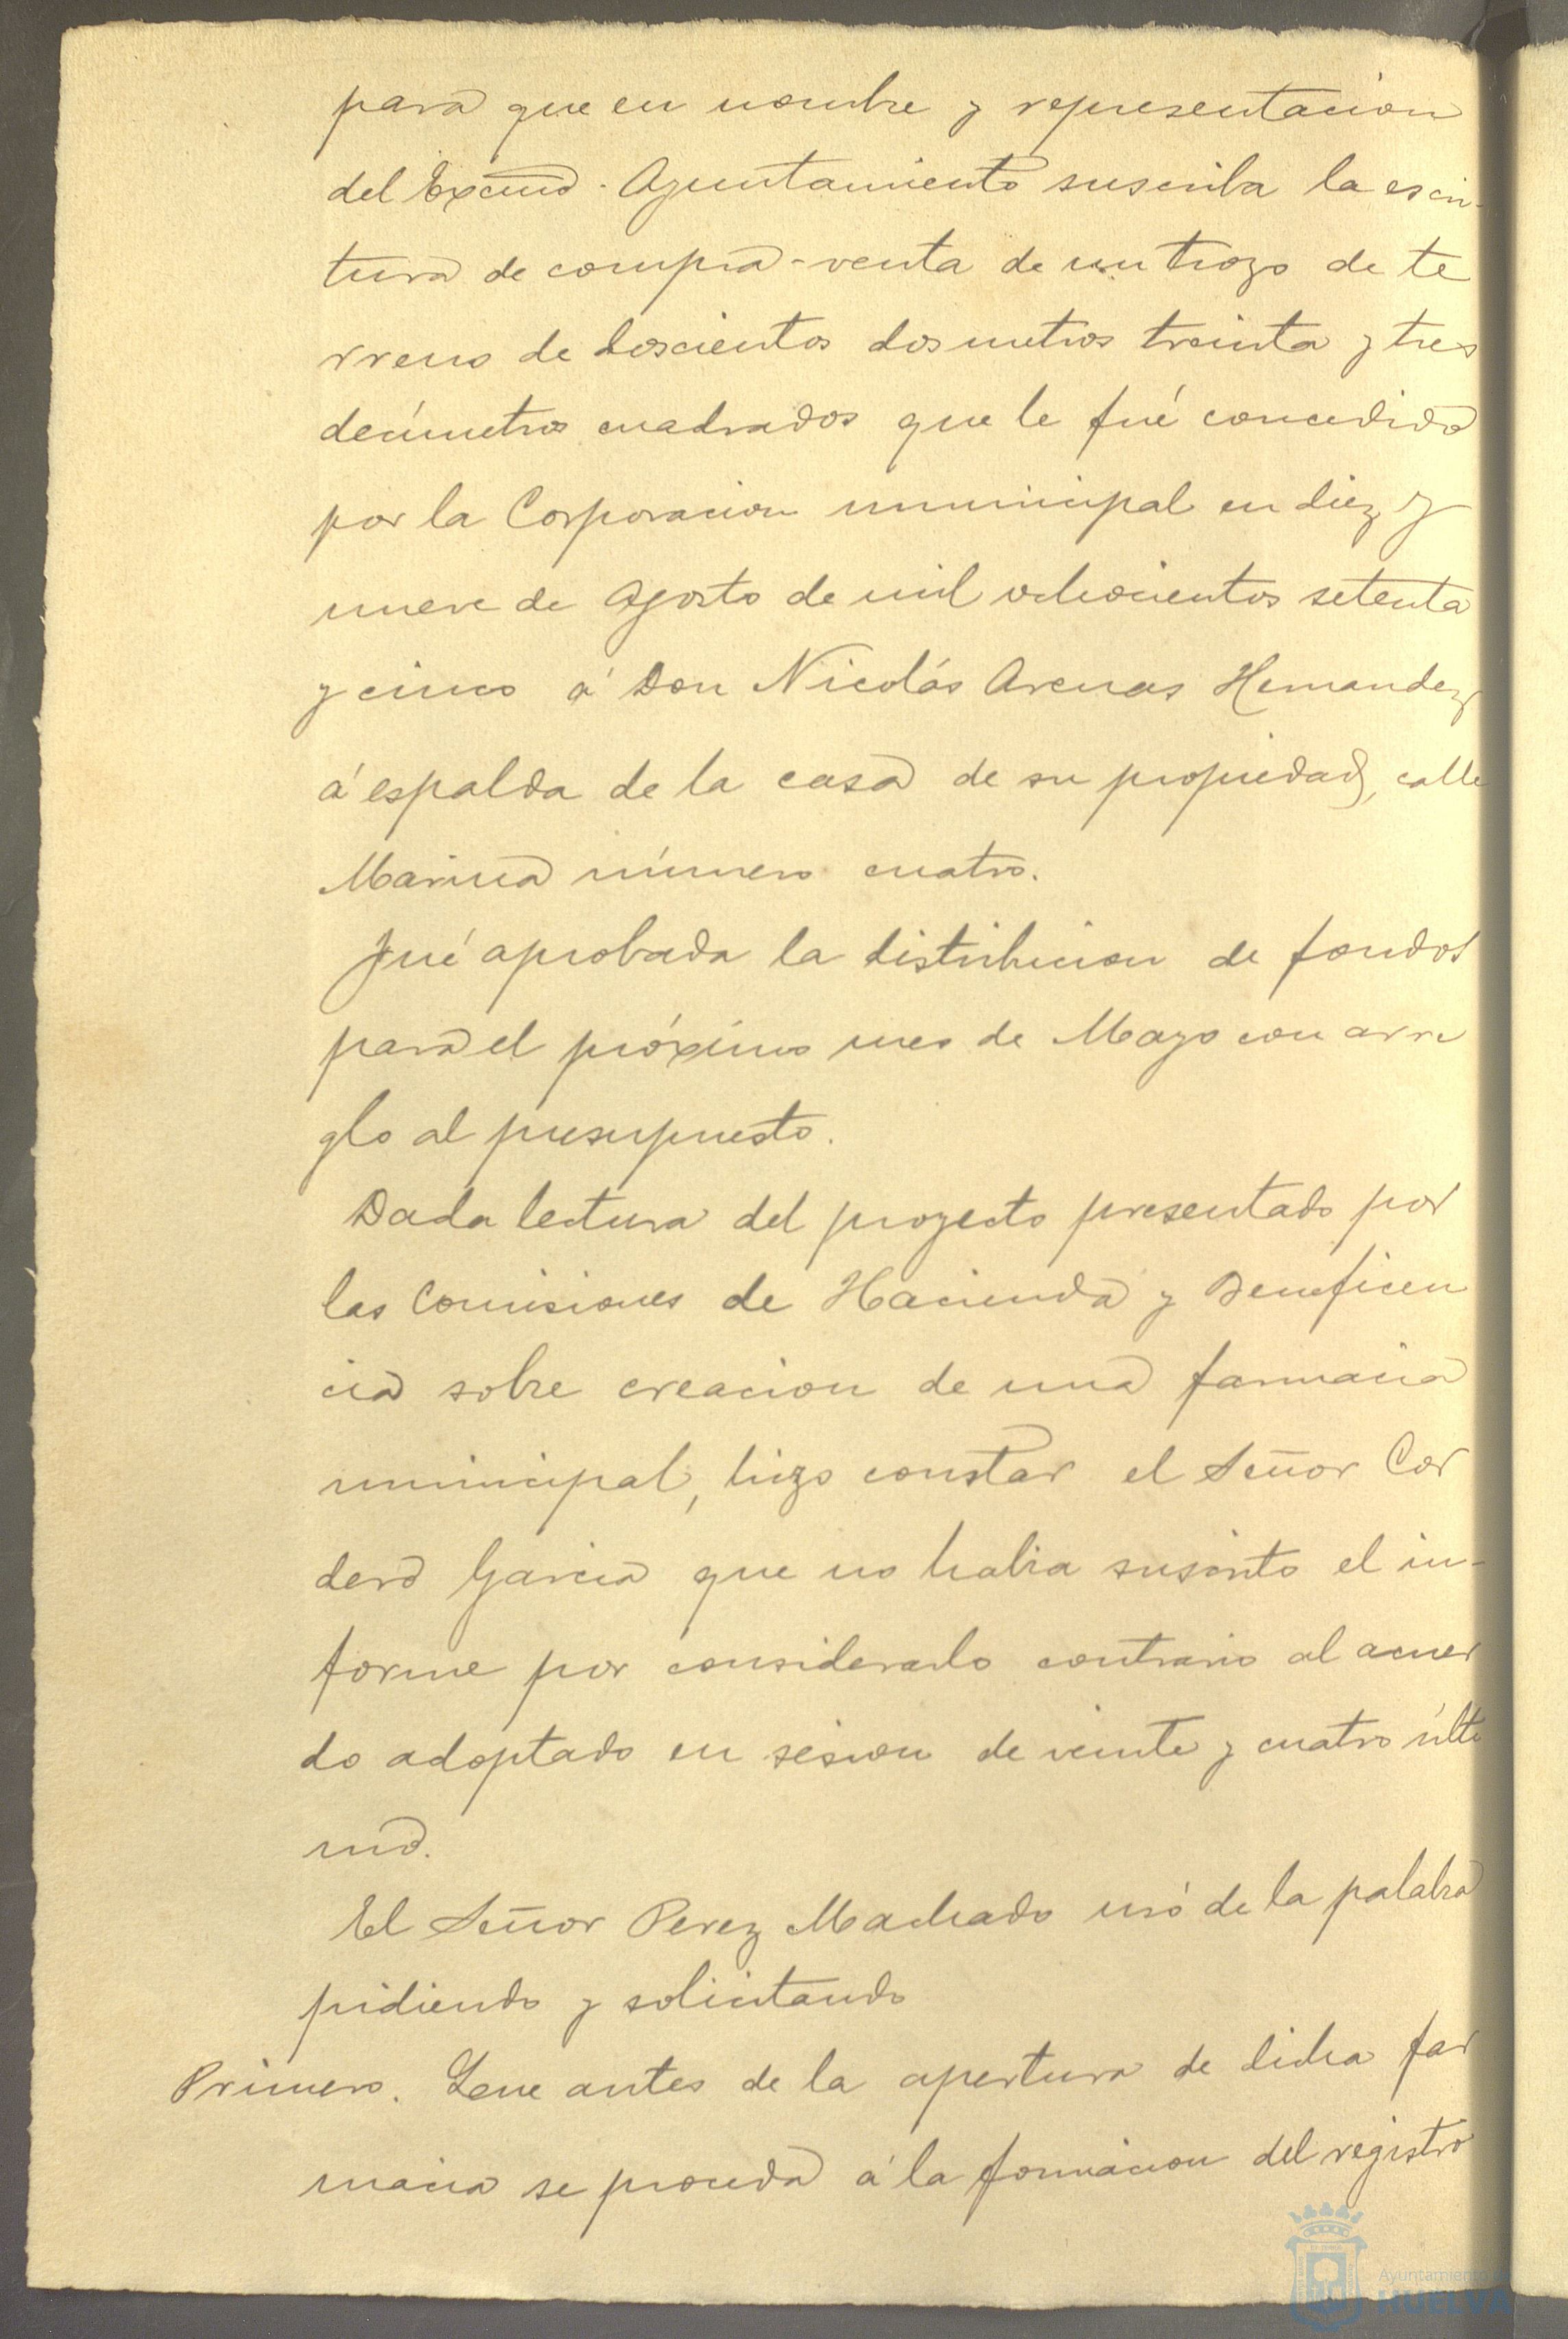 para que en nombre y representacion
del Excmo. Ayuntamiento suscriba la escri-
tura de compra-venta de un trozo de te
rreno de doscientos dos metros treinta y tres
decímetros cuadrados que le fué concedido
por la Corporacion municipal en diez y
nueve de Agosto de mil ochocientos setenta
y cinco á Don Nicolás Arenas Hernandez
á espalda de la casa de su propiedad, calle
Marina número cuatro.
Fué aprobada la distribucion de fondos
para el próximo mes de Mayo con arre
glo al presupuesto.
Dada lectura del proyecto presentado por
las Comisiones de Hacienda y Beneficen
cia sobre creacion de una farmacia
municipal, hizo constar el Señor Cor
dero Garcia que no habia suscrito el in-
forme por considerarlo contrario al acuer
do adoptado en sesion de veinte y cuatro últi
mo.
El Señor Perez Machado usó de la palabra
pidiendo y solicitando
Primero. Que antes de la apertura de dicha far
macia se proceda á la formacion del registro
Ayuntamiento de
HUELVA